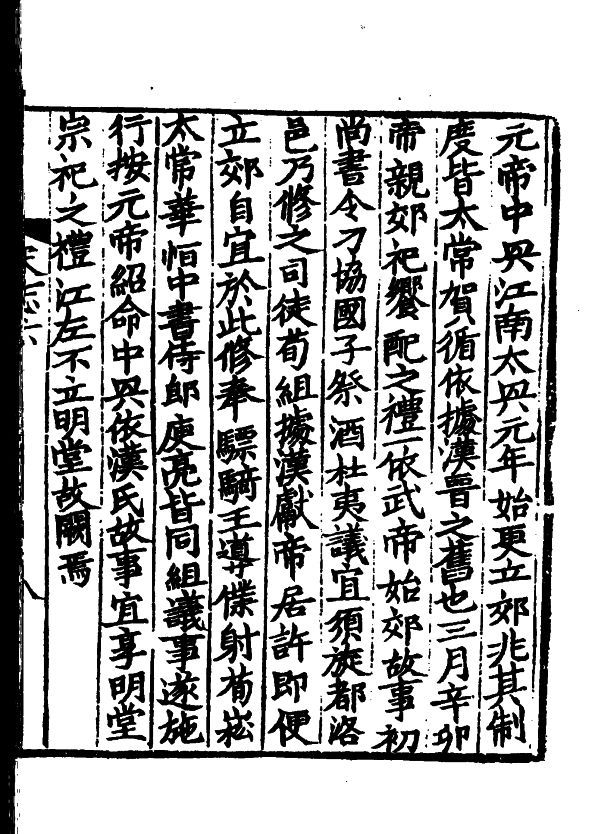 元帝中興江南太興元年始更立郊兆其制
度皆太常賀循依據漢晉之舊也三月辛卯
帝親郊祀饗配之禮一依武帝始郊故事初
尚書令刁協國子祭酒杜夷議宜須旋都洛
邑乃修之司徒荀組據漢獻帝居許即便
立郊自宜於此修奉驃騎王導僕射荀崧
太常華恒中書侍郎庾亮皆同組議事遂施
行按元帝紹命中興依漢氏故事宜享明堂
宗祀之禮江左不立明堂故闕焉